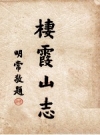 棲霞山志
明常敬題